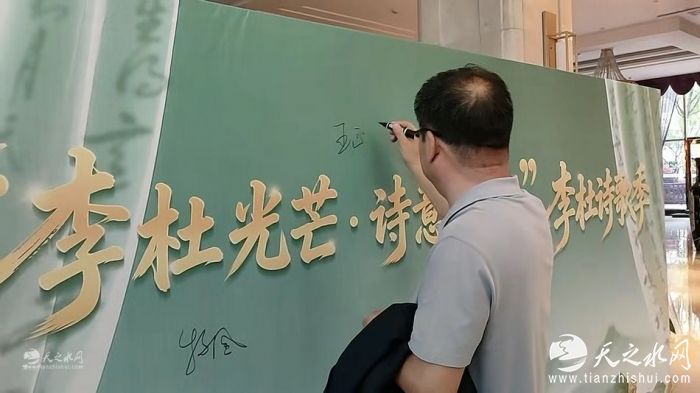 王正
“李杜光芒·诗意 ”李杜诗歌季
天之水网
tianzhishui.com
天之水网
www.tianzhishui.com